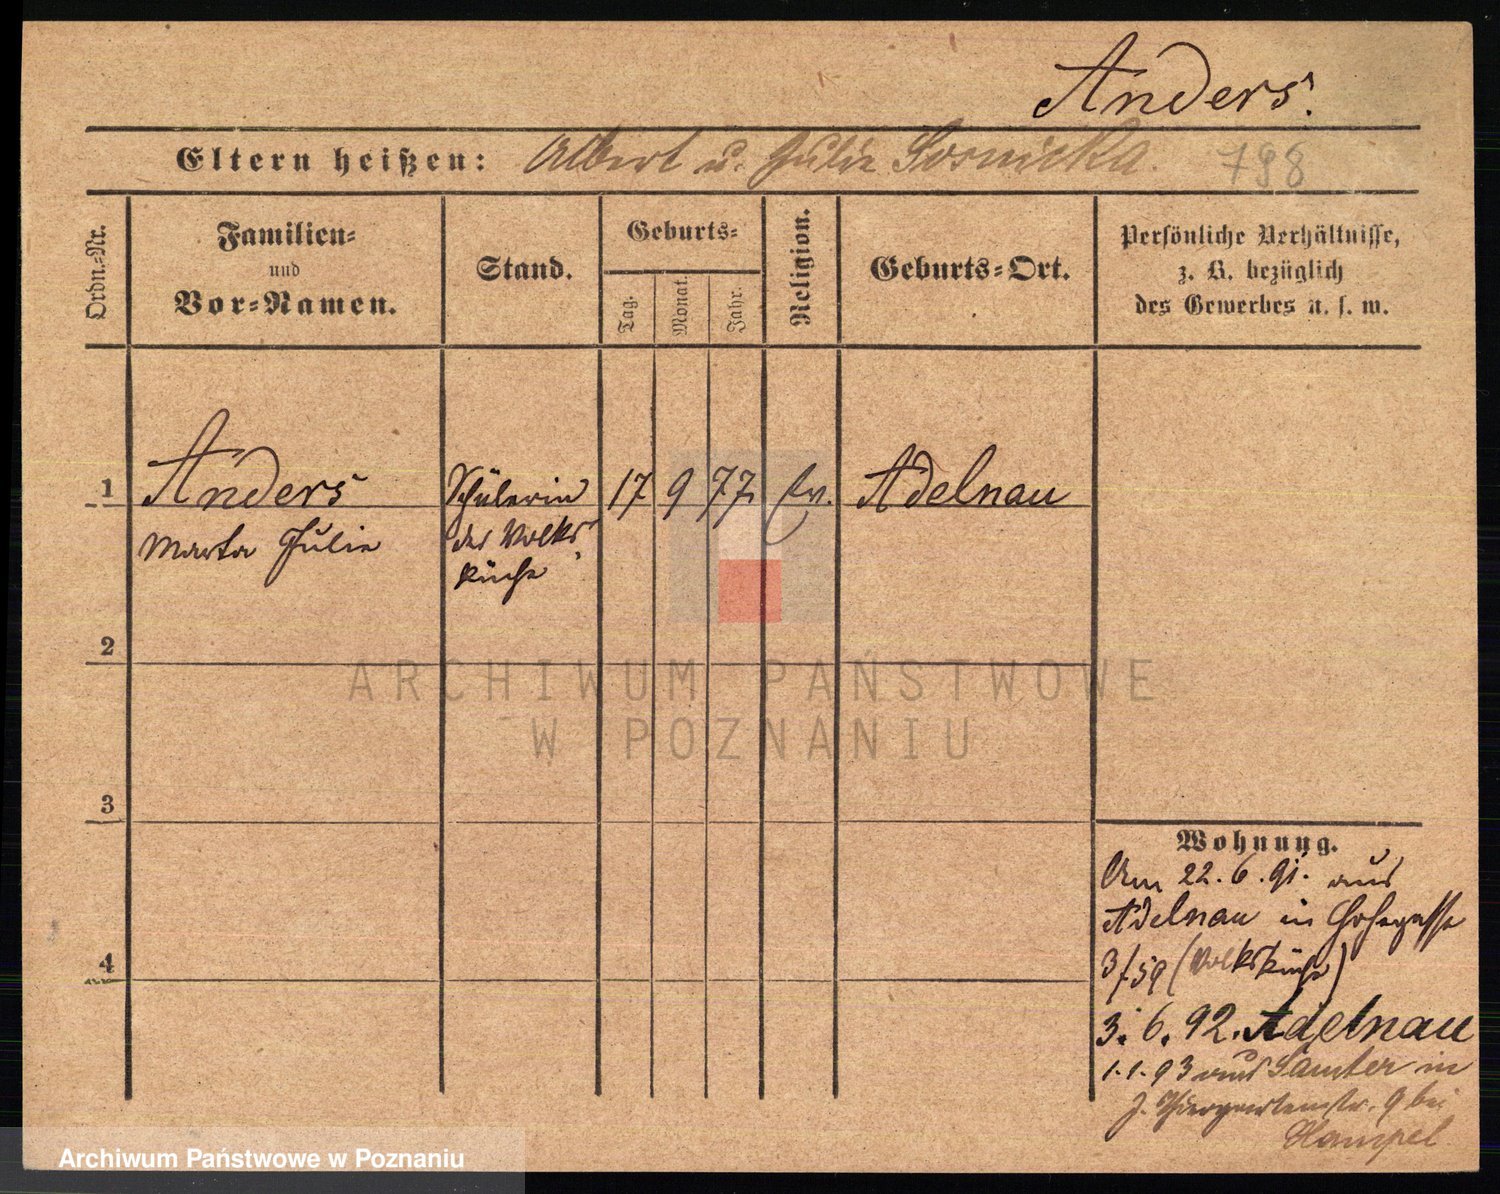 Anders.
Eltern heißen: Albert u. Julie Sosnicka. 798
Ordn.-Nr.
Familien-
und
Vor-Namen.
Stand.
Geburts-
Tag.
Monat.
Jahr.
Religion.
Geburts-Ort.
Persönliche Verhältnisse,
z. B. bezüglich
des Gewerbes u. s. w.
1 Anders Schülerin 17 9 77. Ev. Adelnau
Marta Julie der Volks-
küche
2
3
4
Wohnung.
Am 22.6.91. aus
Adelnau in
3/59 (Volksküche)
3. 6. 92. Adelnau
1.1.93 aus Samter in
Thiergartenstr. 9 bei
Hampel
ARCHIWUM PAŃSTWOWE
W POZNANIU
Archiwum Państwowe w Poznaniu